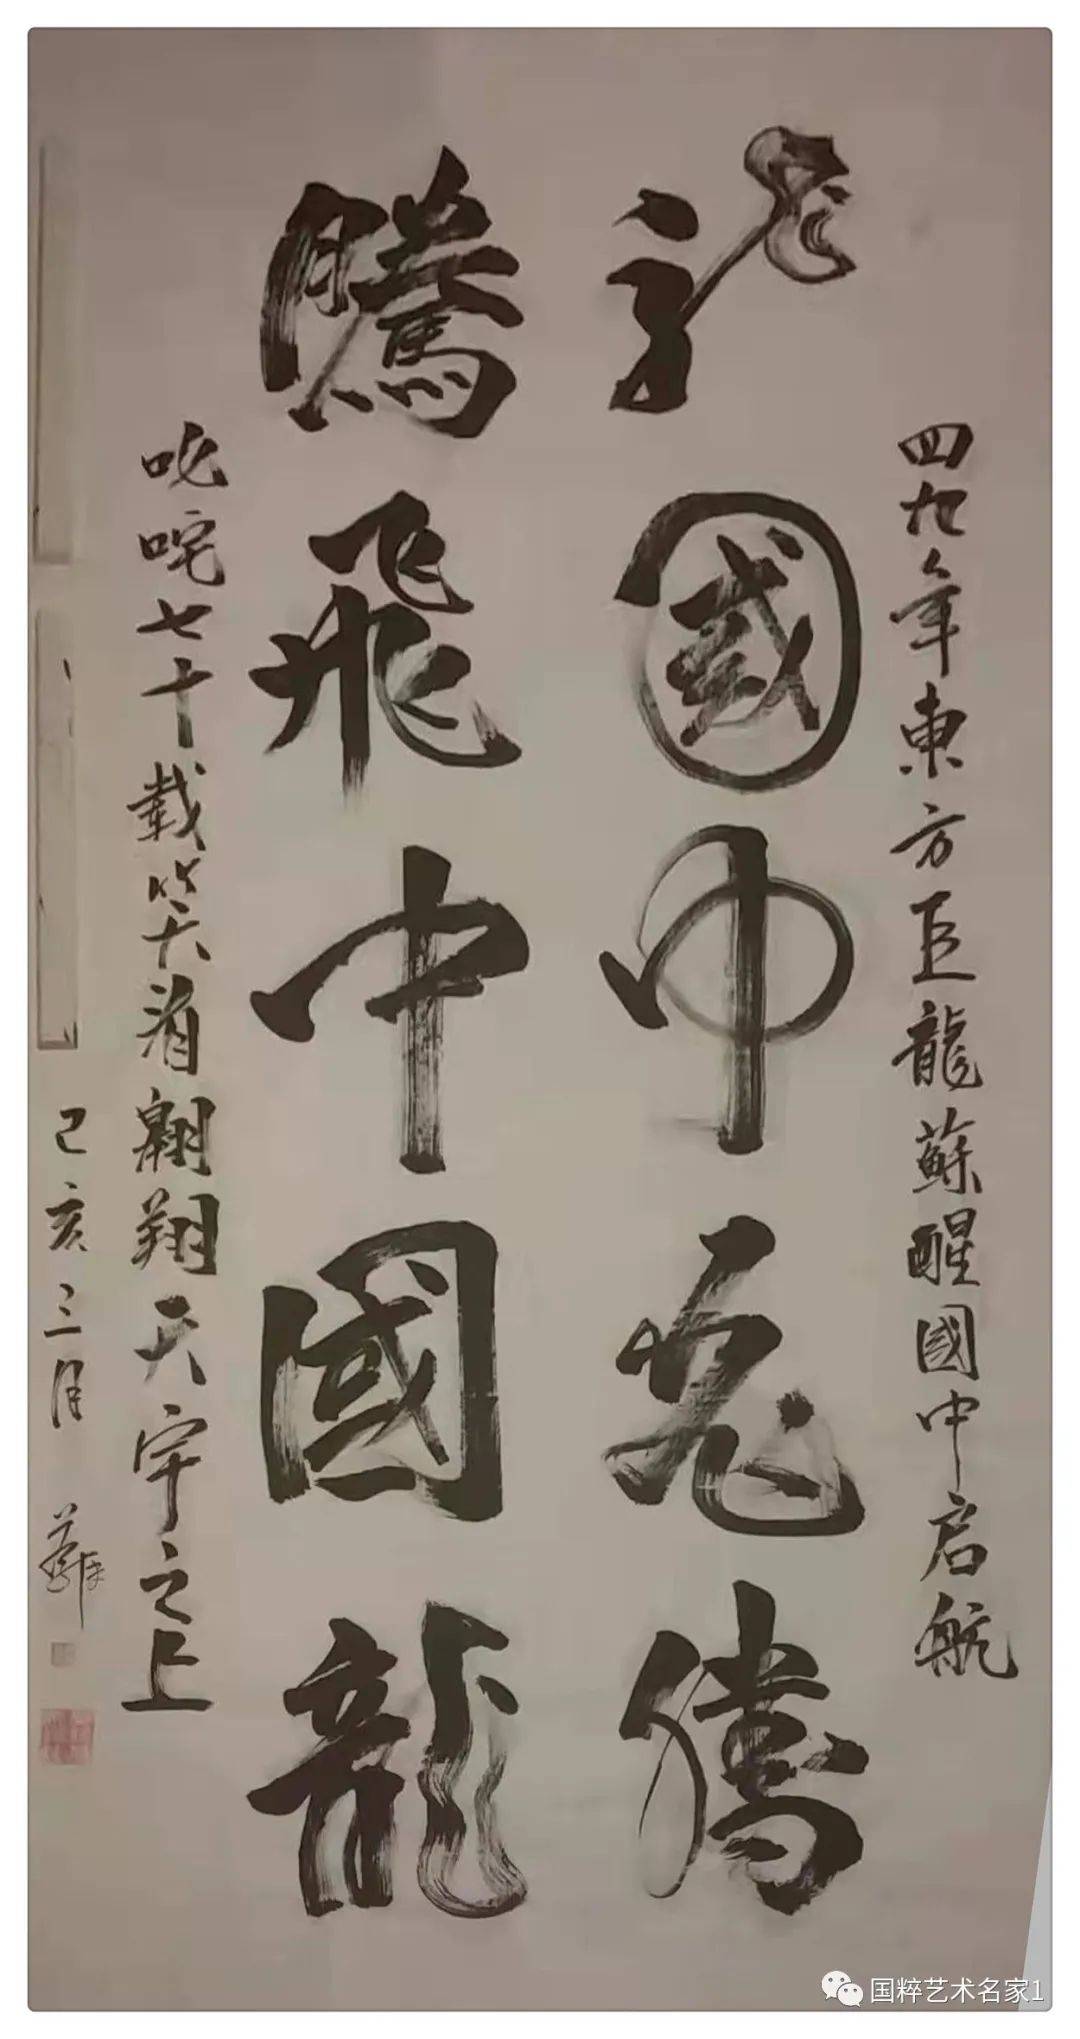 四九年東方巨龍蘇醒國中启航
龍國中飛騰
騰飛中國龍
叱咤七十载笑看翱翔天宇之上
己亥三月
国粹艺术名家1